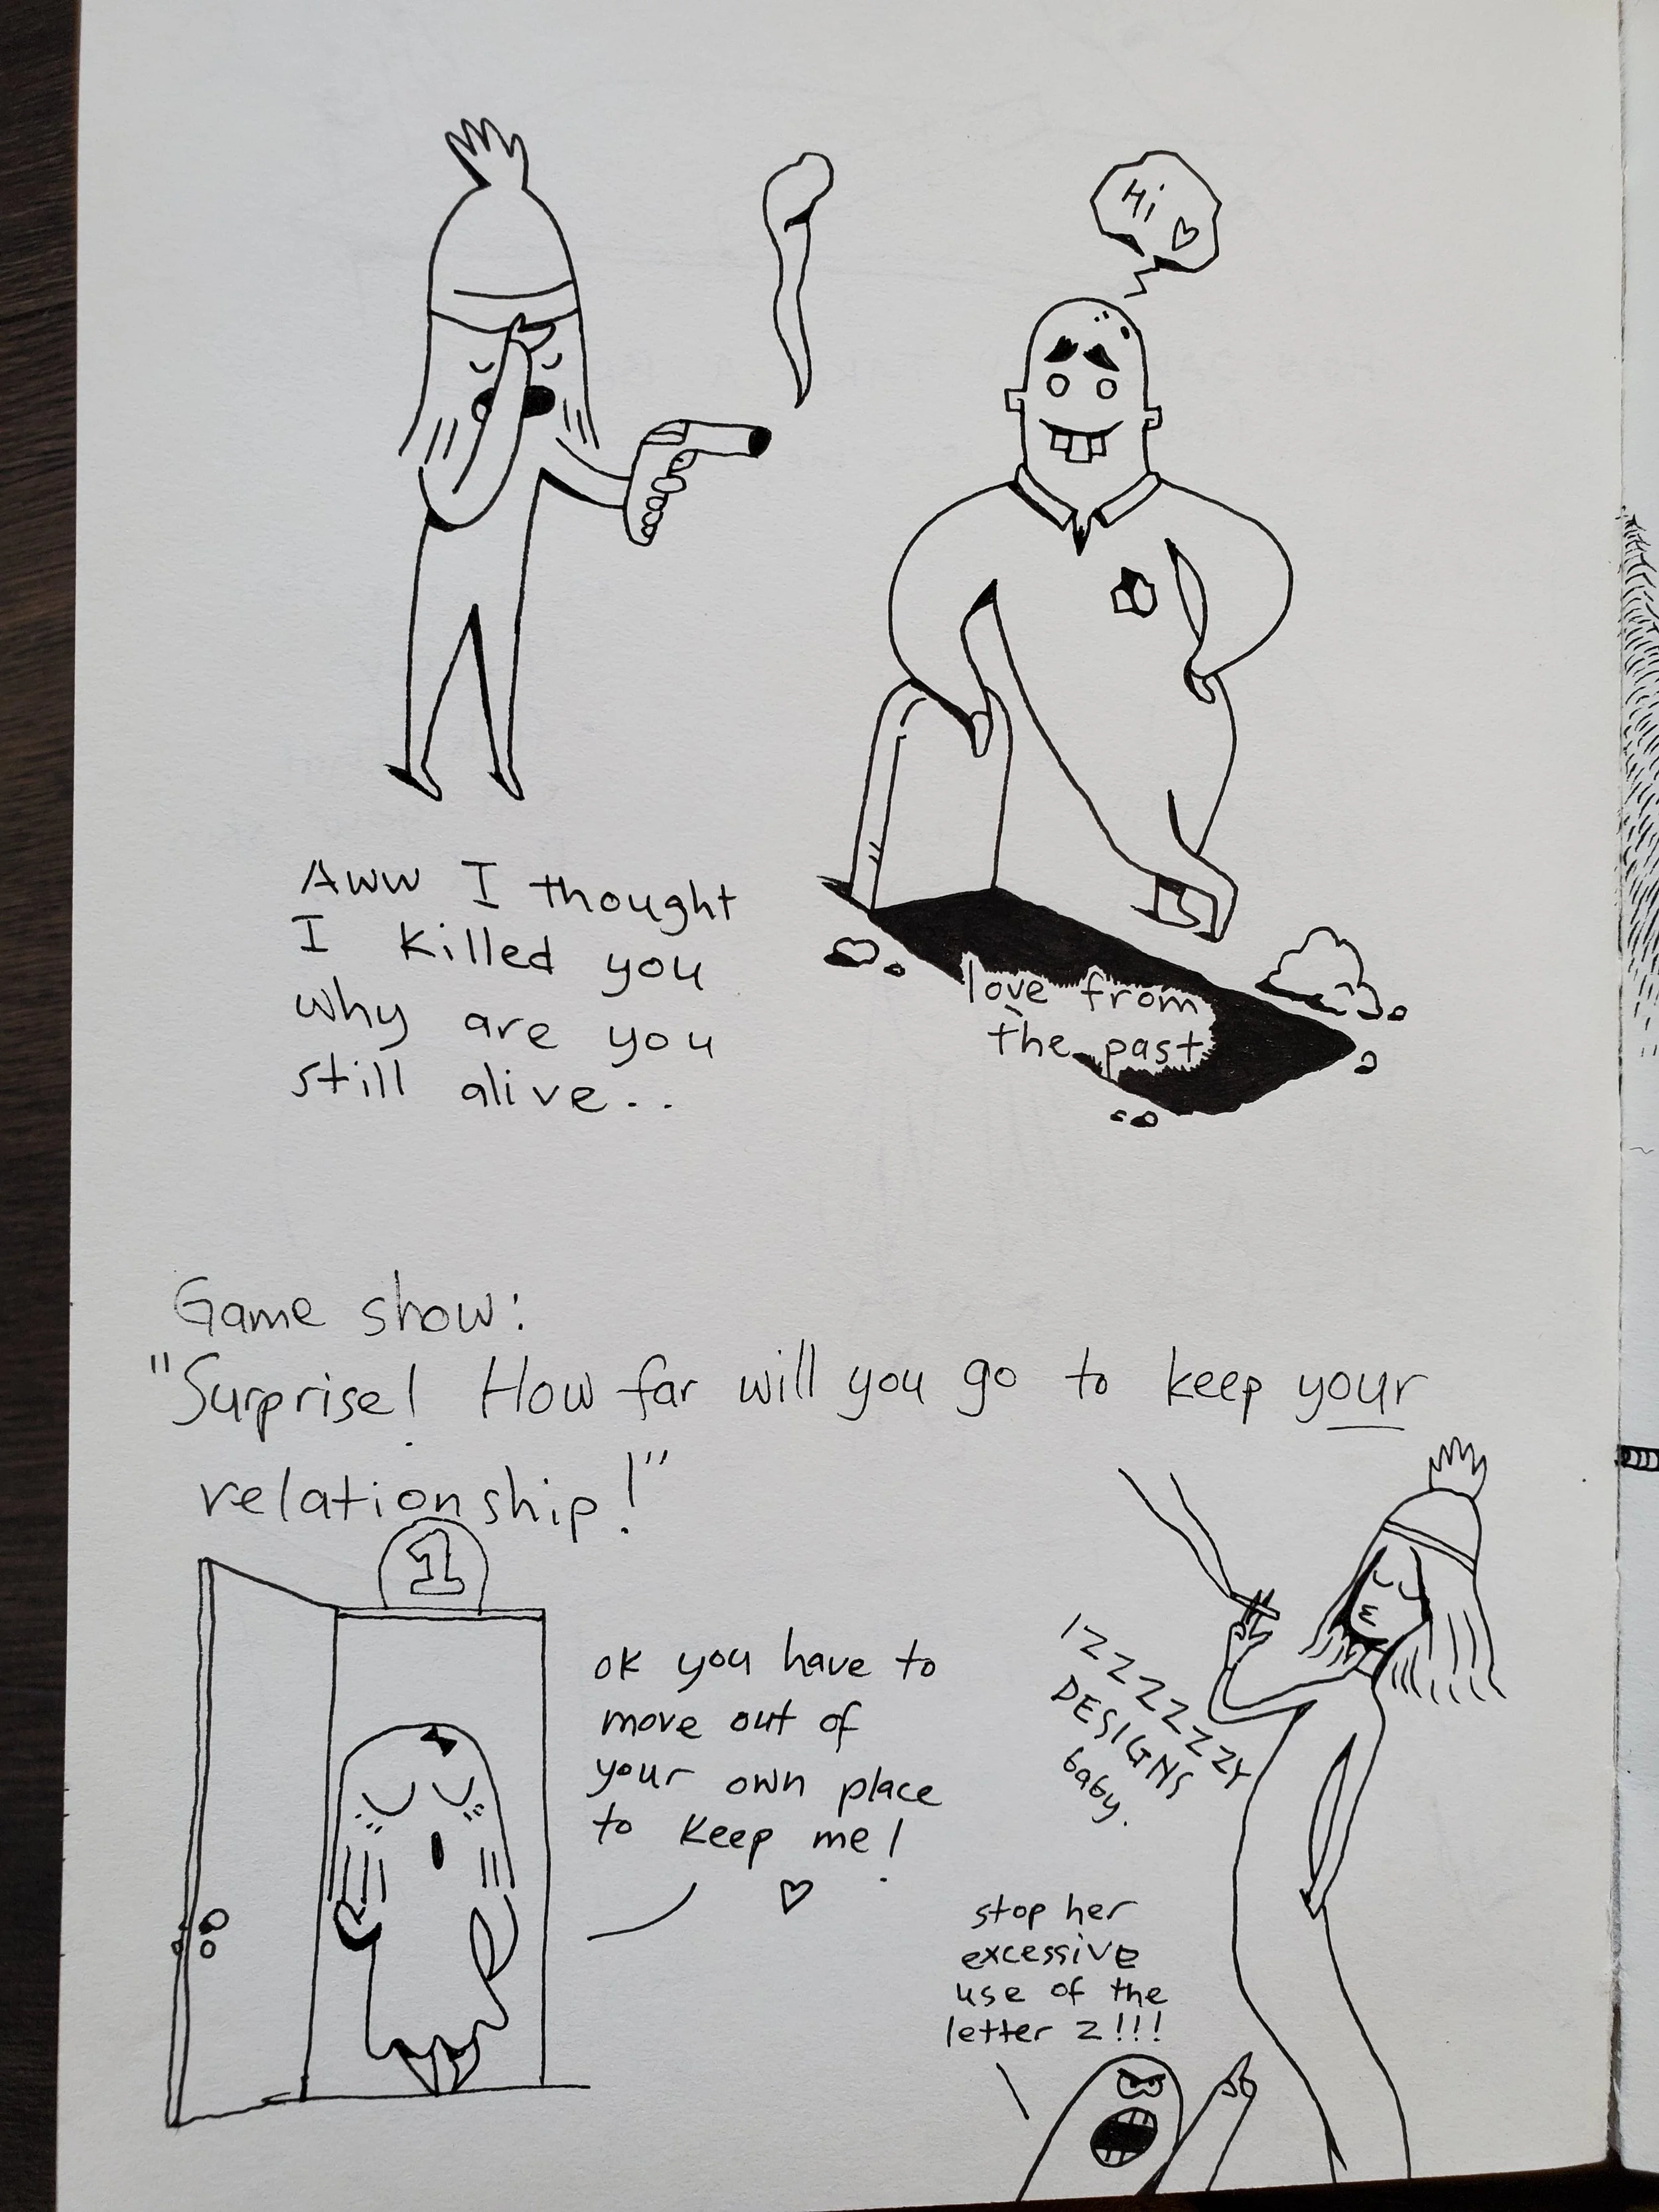 Hi ♡
Aww I thought
I killed you
why are you
still alive..
love from
the past
Game show:
"Surprise! How far will you go to keep your
relationship!"
1
ok you have to
move out of
your own place
to keep me!
♡
IZZZZZZZY
DESIGNS
baby.
stop her
excessive
use of the
letter z!!!